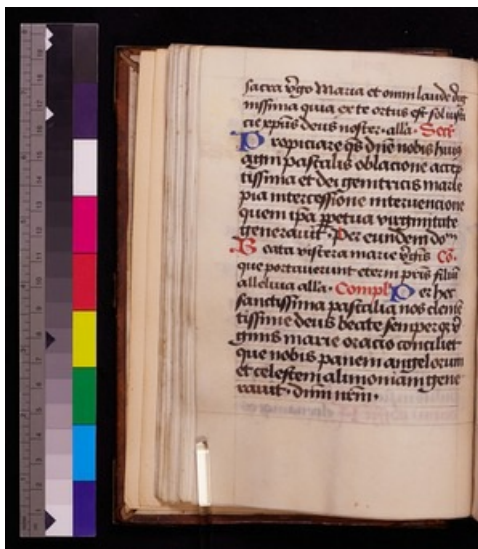 sacra v̄go Maria et omni laude dig
nissima quia ex te ortus est sol iusti
cie xp̄us deus noster · alľa · Secͬ
Propiciare q̄s dn̄e nobis huiꝯ
agni pascalis oblacione accep
tissima et dei genitricis marie
pia intercessione interuencione
quem ip̄a ꝑpetua virginitate
generauit · Per eundem do᷒
Beata viscera marie v̄gīs Cō ·
que portauerunt eterni p̄ris filiū
alleluia alľa · Compľ Per hec
sanctissima pascalia nos cleme
tissime deus beate semper
ginis marie oratio conciliet
que nobis panem angelorum
et celestem alimoniam gene
rauit · dn̄m n̄rm ·